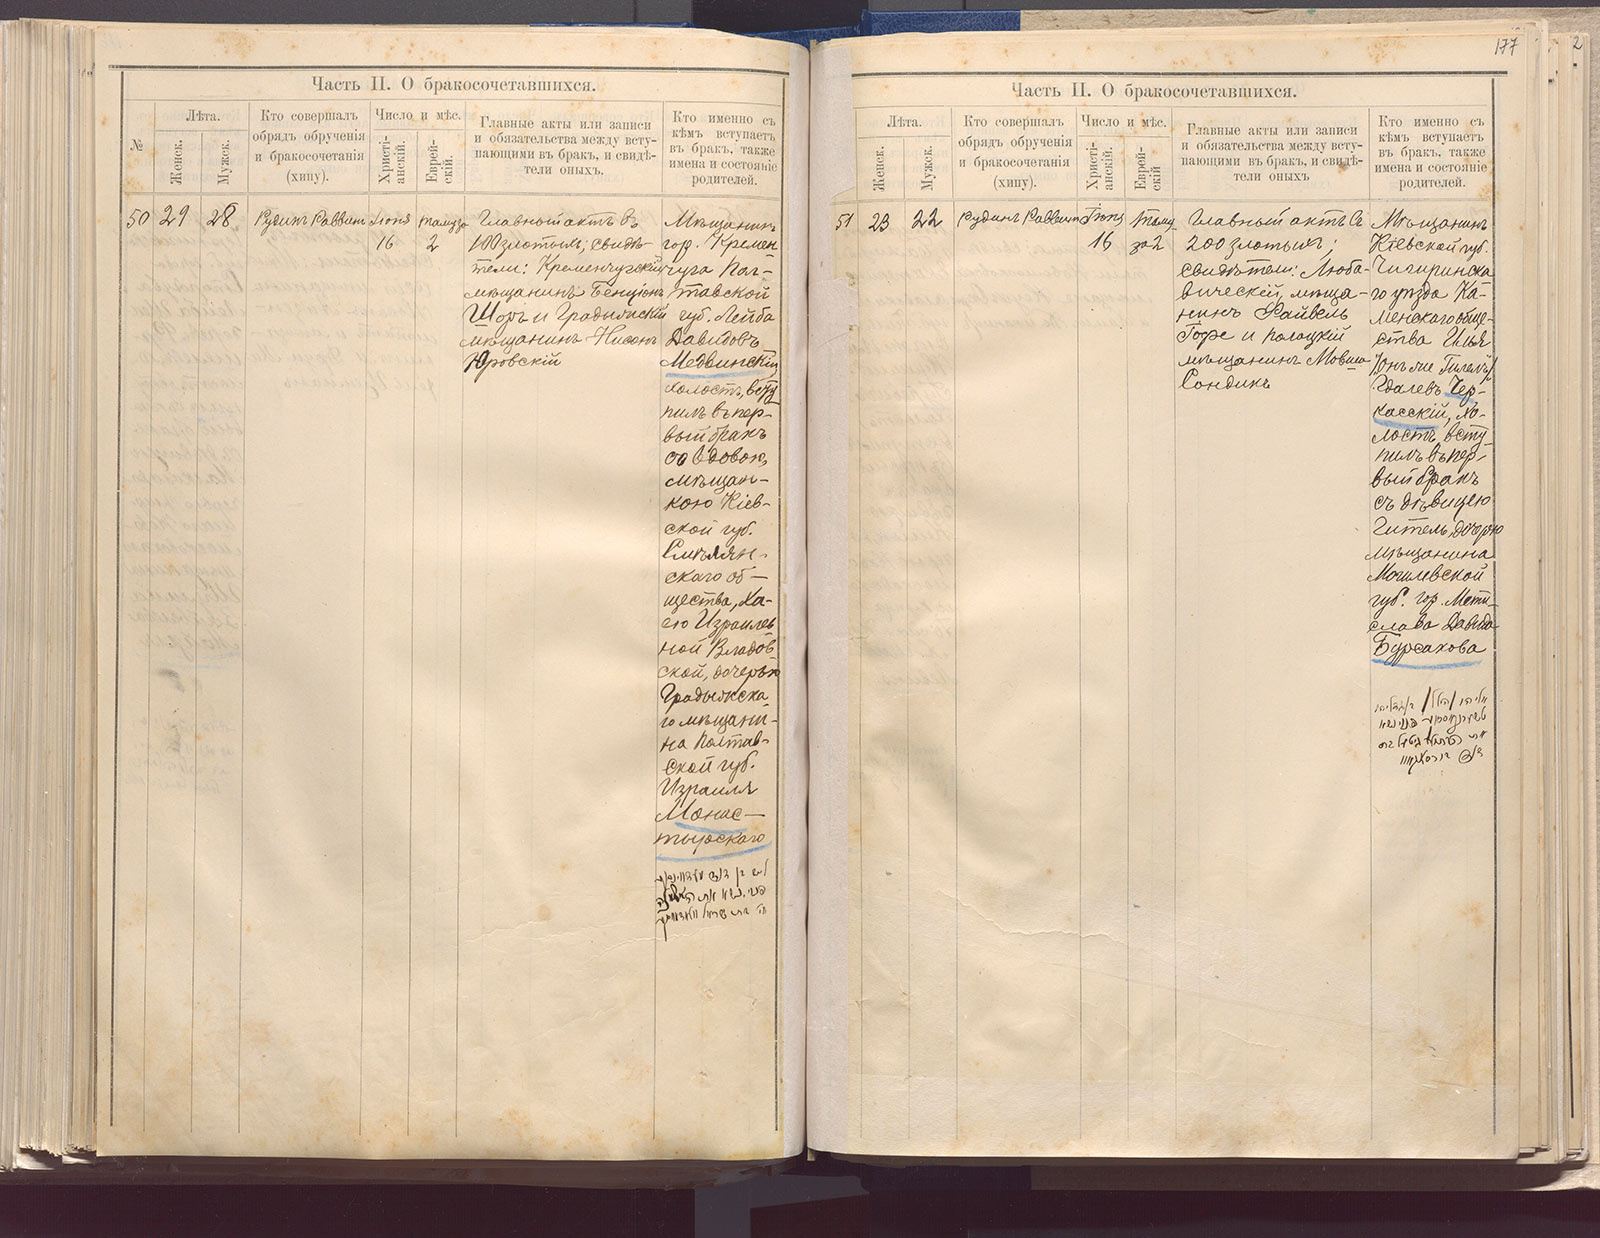 Часть II. О бракосочетавшихся.
№
Лѣта.
Женск.
Мужск.
Кто совершалъ
обрядъ обрученія
и бракосочетанія
(хипу).
Число и мѣс.
Христі-
анскій.
Еврей-
скій.
Главные акты или записи
и обязательства между всту-
пающими въ бракъ, и свидѣ-
тели оныхъ.
Кто именно съ
кѣмъ вступаетъ
въ бракъ, также
имена и состояніе
родителей.
50
29
28
Раввинъ
Іюня
16
2
Главный актъ въ
100 злотыхъ; свидѣ-
тели: Кременчугскій
мѣщанинъ Бенціонъ
Шоръ и Градыжскій
мѣщанинъ Нисонъ
Юровскій
Мѣщанинъ
гор. Кремен-
чуга Пол-
тавской
губ. Лейба
Давидовъ
Медвинскій,
холостъ, всту-
пилъ въ пер-
вый бракъ
со вдовою,
мѣщан-
кою Кіев-
ской губ.
Смѣлян-
скаго об-
щества, Ха-
ею Израилев-
ной Владов-
ской, дочерью
Градыжска-
го мѣщани-
на Полтав-
ской губ.
Израиля
Монас-
тырскаго
177
Часть II. О бракосочетавшихся.
Лѣта.
Женск.
Мужск.
Кто совершалъ
обрядъ обрученія
и бракосочетанія
(хипу).
Число и мѣс.
Христі-
анскій.
Еврей-
скій
Главные акты или записи
и обязательства между всту-
пающими въ бракъ, и свидѣ-
тели оныхъ
Кто именно съ
кѣмъ вступаетъ
въ бракъ, также
имена и состояніе
родителей.
51
23
22
Раввинъ
16
Таму-
за 2
Главный актъ въ
200 злотыхъ;
свидѣтели: Люба-
вическій мѣща-
нинъ Файвель
и Полоцкій
мѣщанинъ Мовша
Сондикъ
Мѣщанинъ
Кіевской губ.
Чигиринска-
го уѣзда Ка-
менскаго обще-
ства Илья
(онъ же Гилель)
Гдалевъ Чер-
касскій, хо-
лостъ, всту-
пилъ въ пер-
вый бракъ
съ дѣвицею
Гитель, дочерью
мѣщанина
Могилевской
губ. гор. Мсти-
слава Давида
Бурсакова